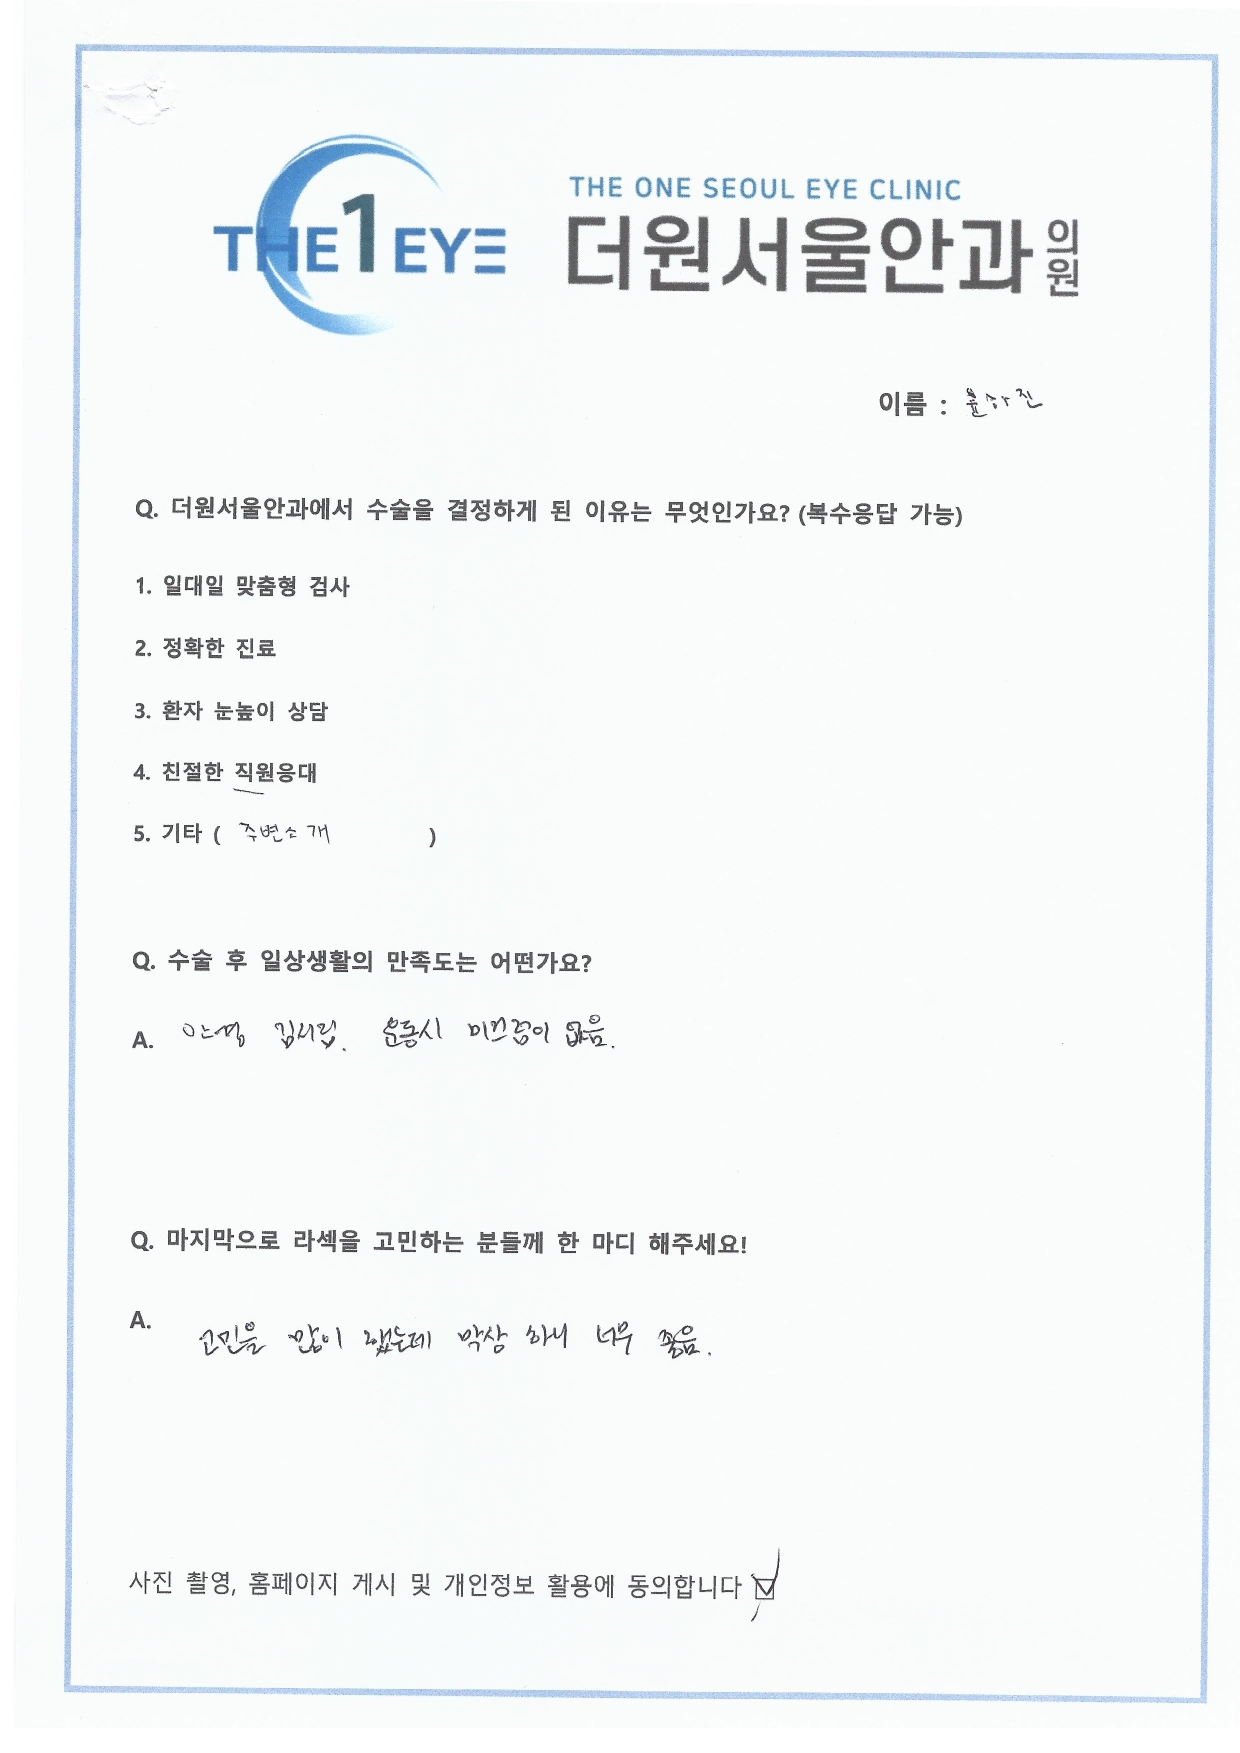 THE 1 EYE
THE ONE SEOUL EYE CLINIC
더원서울안과의원
이름 : 윤하진
Q. 더원서울안과에서 수술을 결정하게 된 이유는 무엇인가요? (복수응답 가능)
1. 일대일 맞춤형 검사
2. 정확한 진료
3. 환자 눈높이 상담
4. 친절한 직원응대
5. 기타 ( 주변소개 )
Q. 수술 후 일상생활의 만족도는 어떤가요?
A. 안경 김서림. 운동시 미끄럼이 없음.
Q. 마지막으로 라섹을 고민하는 분들께 한 마디 해주세요!
A. 고민을 많이 했는데 막상 하니 너무 좋음.
사진 촬영, 홈페이지 게시 및 개인정보 활용에 동의합니다